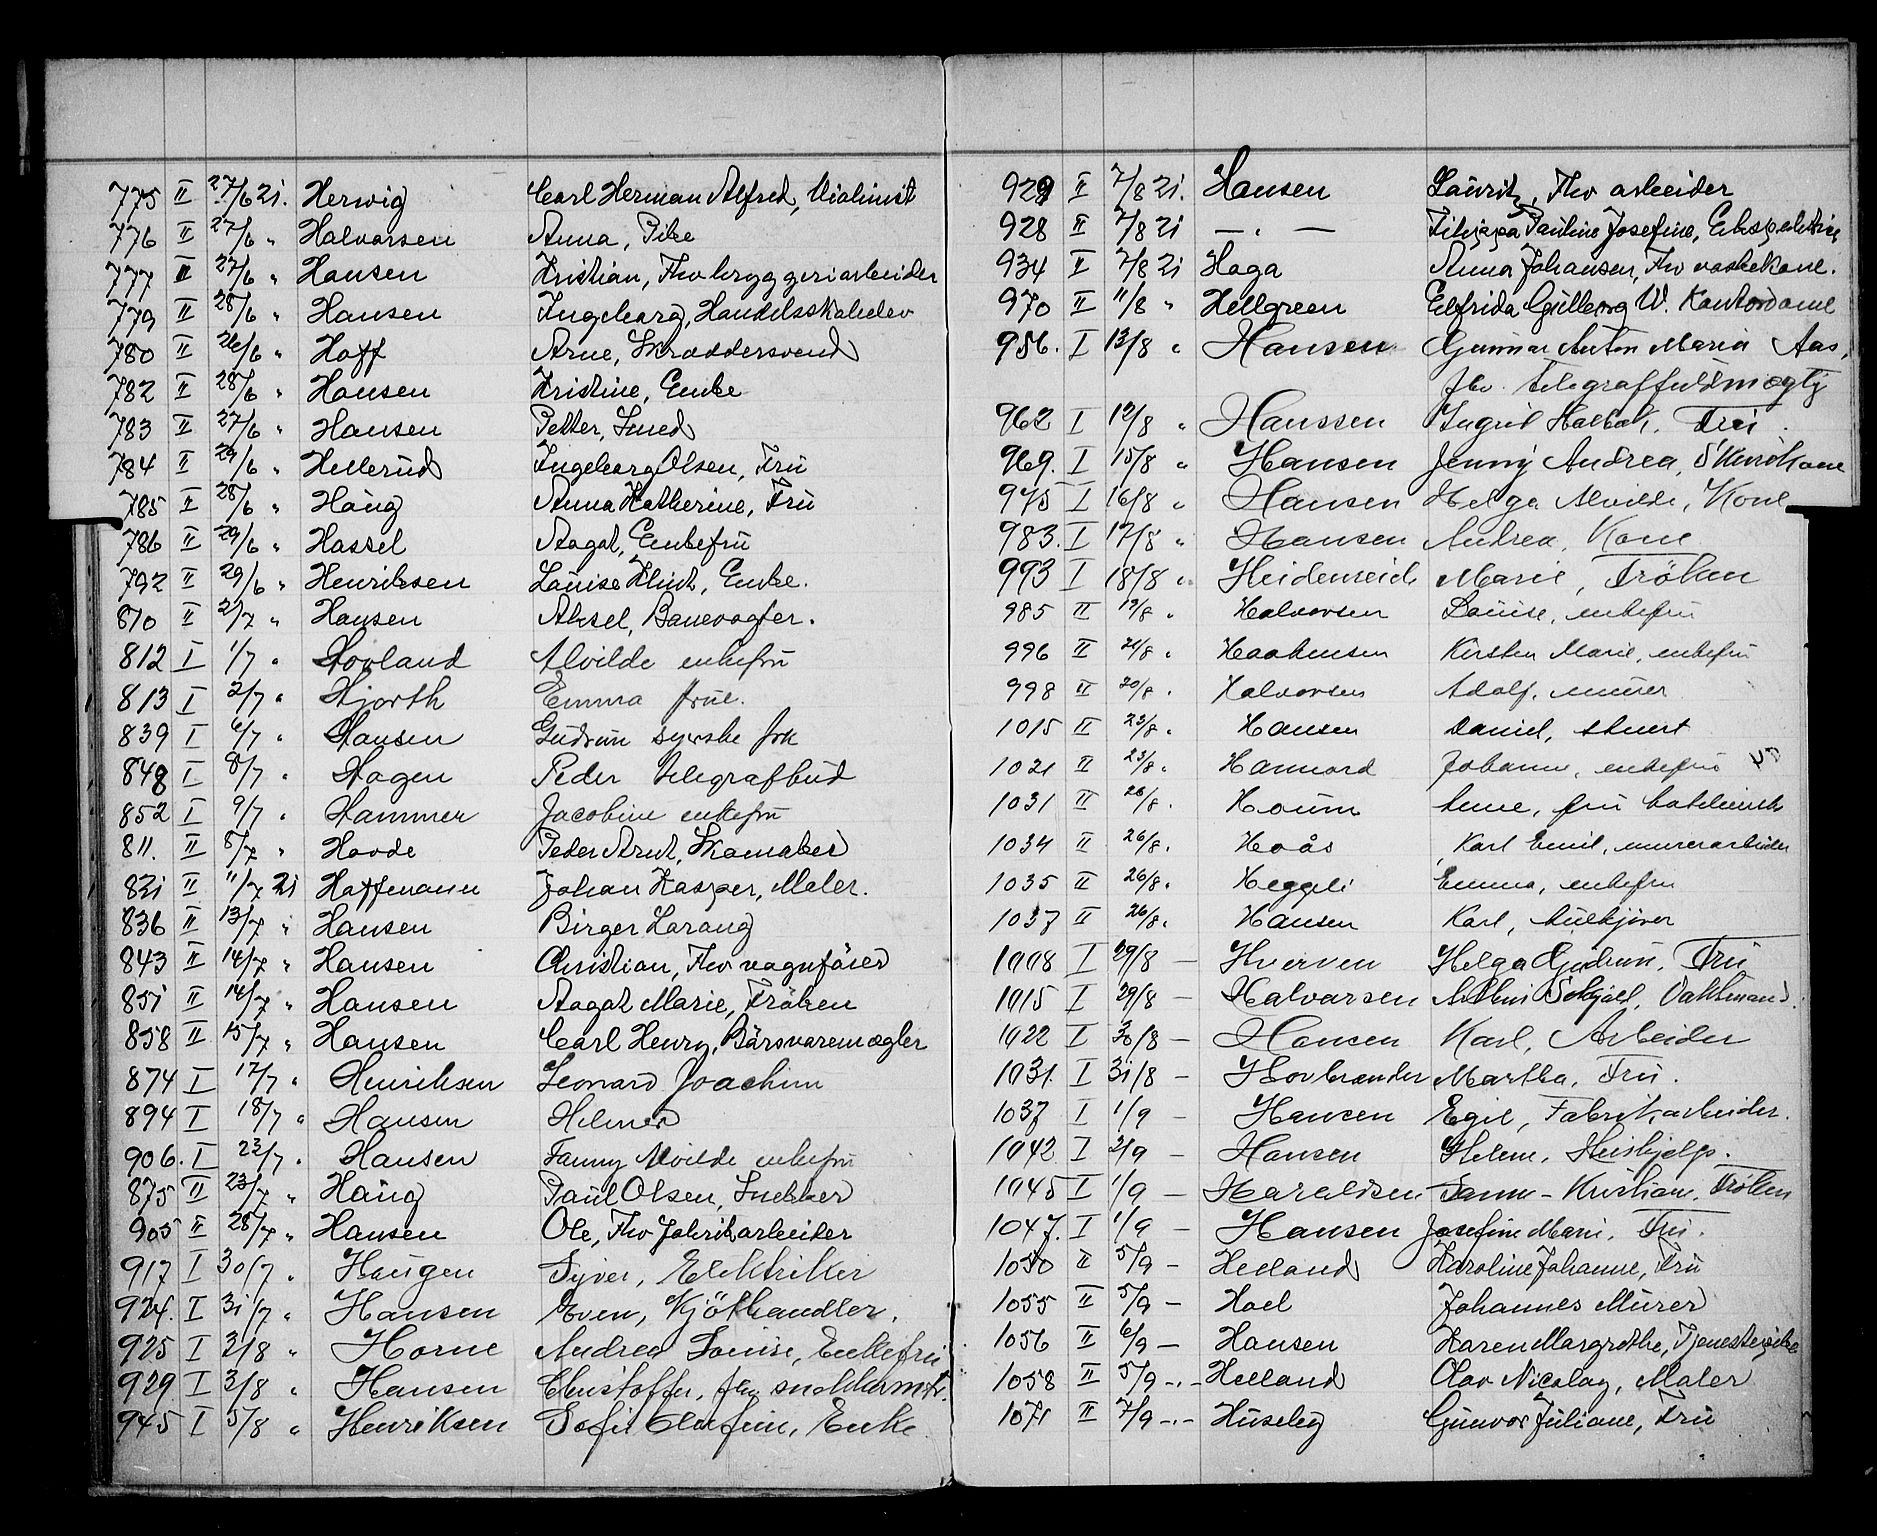 775 II 27/6 21. Herwig Carl Herman Alfred, Violinist
776 II 27/6 " Halvorsen Anna, Pike
777 II 27/6 " Hansen Kristian, Fhv bryggeriarbeider
779 II 28/6 " Hansen Ingeborg, Handelsskoleelev
780 II 26/6 " Hoff Arne, Skræddersvend
782 II 28/6 " Hansen Kristine, Enke
783 II 27/6 " Hansen Petter, Smed
784 II 29/6 " Hellerud Ingeborg Olsen, Fru
785 II 28/6 " Haug Anna Katherine, Fru
786 II 29/6 " Hassel Aagot, Enkefru
792 II 29/6 " Henriksen Louise Klint, Enke.
810 II 2/7 " Hansen Aksel, Banevogter.
812 I 1/7 " Hovland Alvilde enkefru
813 I 2/7 " Hjorth Emma frue.
839 I 6/7 " Hansen Gudrun syerske frk
848 I 8/7 " Hagen Peder telegrafbud
852 I 9/7 " Hammer Jacobine enkefru
811. II 8/7 " Hovde Peder Arnt, Skomaker
821 II 11/7 21 Hoffmann Johan Kasper, Maler.
836 II 13/7 " Hansen Birger Larang
843 II 14/7 " Hansen Christian, Fhv vognfører
851 II 14/7 " Hansen Aagot Marie, Frøken
858 II 15/7 " Hansen Carl Henry, Børsvaremægler
874 I 17/7 " Henriksen Leonard Joachim
894 I 18/7 " Hansen Helmer
906. I 22/7 " Hansen Fanny Alvilde enkefru
875 II 23/7 " Haug Paul Olsen, Snekker
905 II 28/7 " Hansen Ole, Fhv fabrikarbeider
917 I 30/7 " Haugen Syver, Elektriker
924. I 31/7 " Hansen Even, Kjøthandler.
925 I 2/8 " Horne Andrea Louise, Enkefru
929 I 3/8 " Hansen Christoffer, fhv snekkermstr.
945 I 5/8 " Henriksen Sofie Olefine, Enke
929 II 7/8 21. Hansen Lauritz, Fhv arbeider
928 II 7/8 21 — " — Filippa Pauline Josefine, Ekspeditrice
934 I 7/8 21 Haga Anna Johansen, Fhv vaskekone.
970 II 11/8 " Hellgreen Elfrida Gülborg W. Kontordame
956. I 13/8 " Hansen Gunnar Anton Maria Aas,
fhv. telegraffuldmægtig
962 I 12/8 " Hanssen Ingrid Holbæk. Fru.
969. I 15/8 " Hansen Jenny Andrea, Skurekone
975 I 16/8 " Hansen Helga Alvilde, Kone
983. I 17/8 " Hansen Andrea, Kone
993 I 18/8 " Heidenreich Marie, Frøken
985 II 19/8 " Halvorsen Louise, enkefru
996 II 21/8 " Haakensen Kirsten Marie, enkefru
998 II 20/8 " Halvorsen Adolf. murer
1015 II 23/8 " Hansen Daniel, stuert
1021 II 23/8 " Hannord Johanne, enkefru
1031 II 26/8 " Houm Anne, fru
1034 II 26/8 " Hoås Karl Emil, murerarbeider
1035 II 26/8 " Heggeli Emma, enkefru
1037 II 26/8 " Hansen Karl,
1008 I 29/8 — Hverven Helga Gudrun. Fru
1015 I 29/8 — Halvorsen Vaktmand.
1022 I 30/8 — Hansen Karl, Arbeider
1031. I 31/8 — Hovbrænder Martha, Fru.
1037 I 1/9 — Hansen Egil, Fabrikarbeider.
1042 I 2/9 — Hansen Helene, Hushjelp.
1045 I 1/9 — Haraldsen Kristiane, Frøken
1047. I 1/9 — Hansen Josefine Marie. Fru.
1050 II 5/9 — Helland Karoline Johanne, Fru
1055 II 5/9 — Hoel Johannes Murer
1056 II 6/9 — Hansen Karen Margrethe, Tjenestepike
1058 II 5/9 -"- Helland Olav Nicolay, Maler
1071 II 7/9 -"- Huseby Gunvor Juliane, Fru